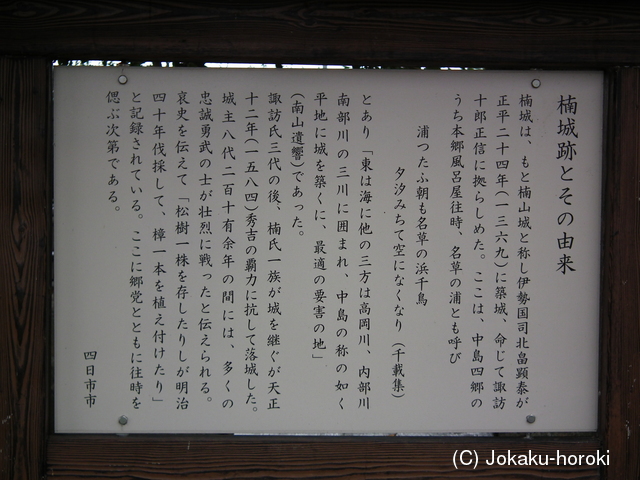 楠城跡とその由来
楠城は、もと楠山城と称し伊勢国司北畠顕泰が
正平二十四年(一三六九)に築城、命じて諏訪
十郎正信に拠らしめた。ここは、中島四郷の
うち本郷風呂屋往時、名草の浦とも呼び
浦つたふ朝も名草の浜千鳥
夕汐みちて空になくなり(千載集)
とあり「東は海に他の三方は高岡川、内部川
南部川の三川に囲まれ、中島の称の如く
平地に城を築くに、最適の要害の地」
(南山遺響)であった。
諏訪氏三代の後、楠氏一族が城を継ぐが天正
十二年(一五八四)秀吉の覇力に抗して落城した。
城主八代二百十有余年の間には、多くの
忠誠勇武の士が壮烈に戦ったと伝えられる。
哀史を伝えて「松樹一株を存したりしが明治
四十年伐採して、樟一本を植え付けたり」
と記録されている。ここに郷党とともに往時を
偲ぶ次第である。
四日市市
(C) Jokaku-horoki